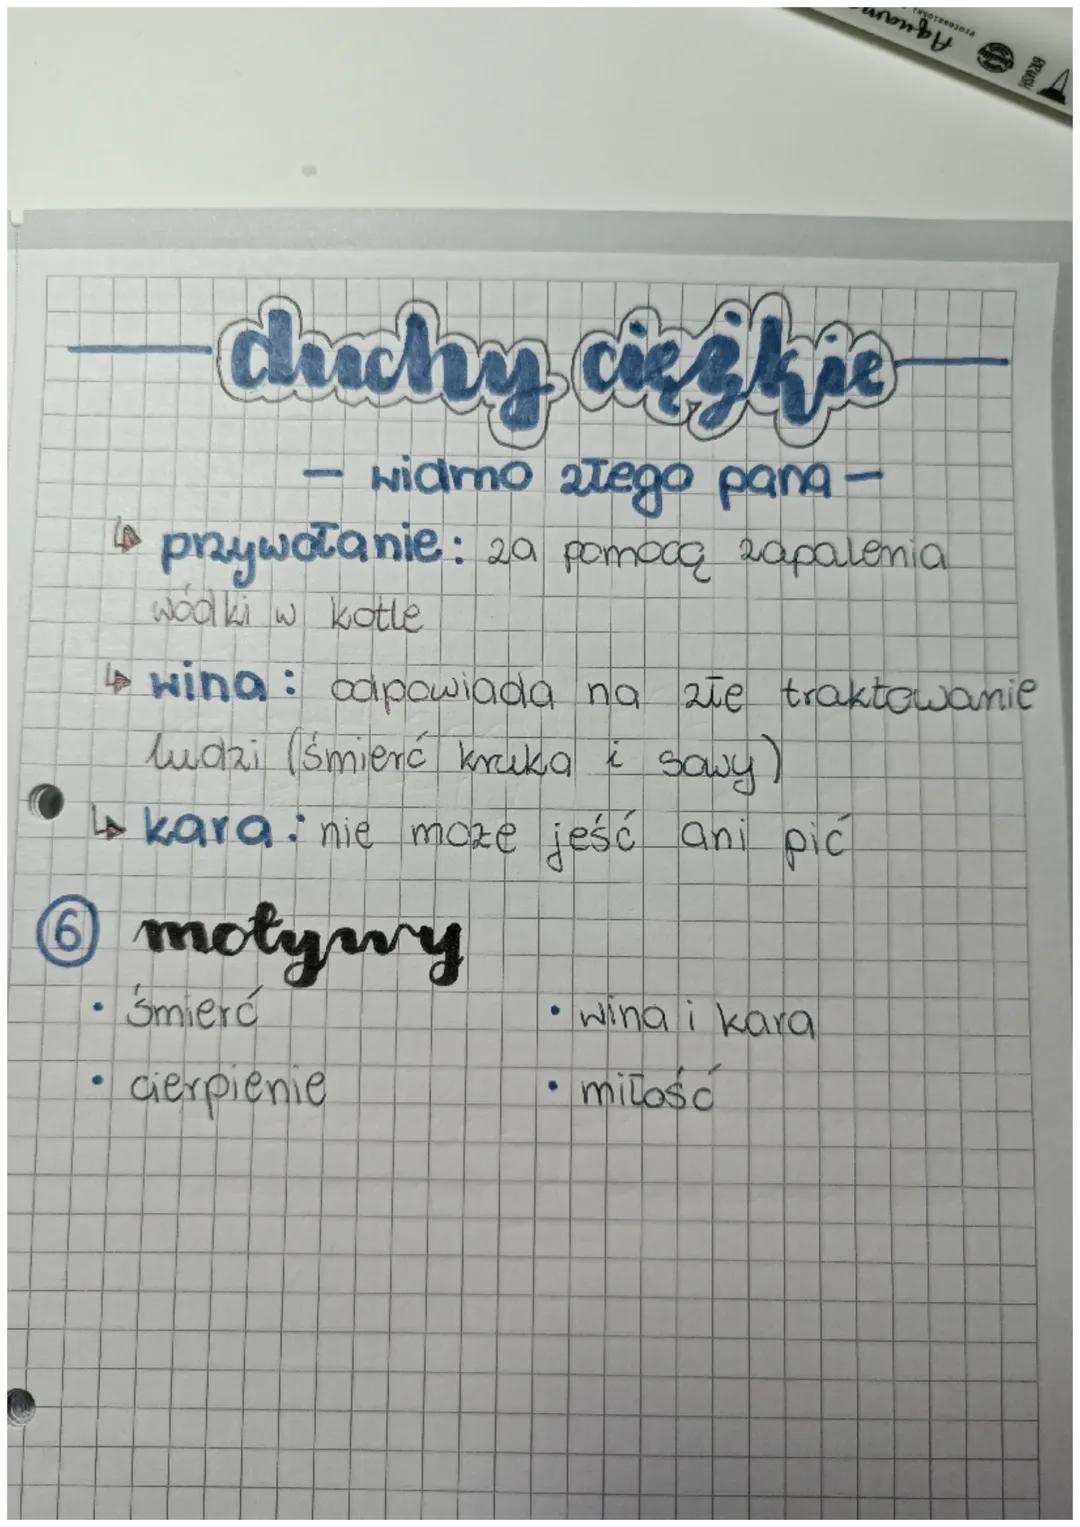 Aquare
PROFESSIONAL
BRUSH
duchy ciężkie
- widmo złego pana -
↳ przywołanie: za pomocą zapalenia
wódki w kotle
↳ wina: odpowiada na złe traktowanie
ludzi (śmierć kruka i sowy)
↳ kara: nie może jeść ani pić
6 motywy
• śmierć
• wina i kara
• cierpienie
• miłość